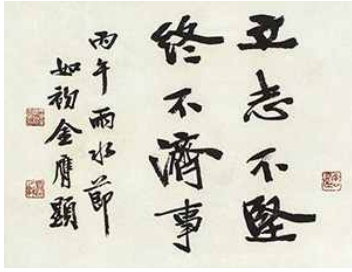 立志不坚
终不濟事
丙午雨水節
如初金膺顯